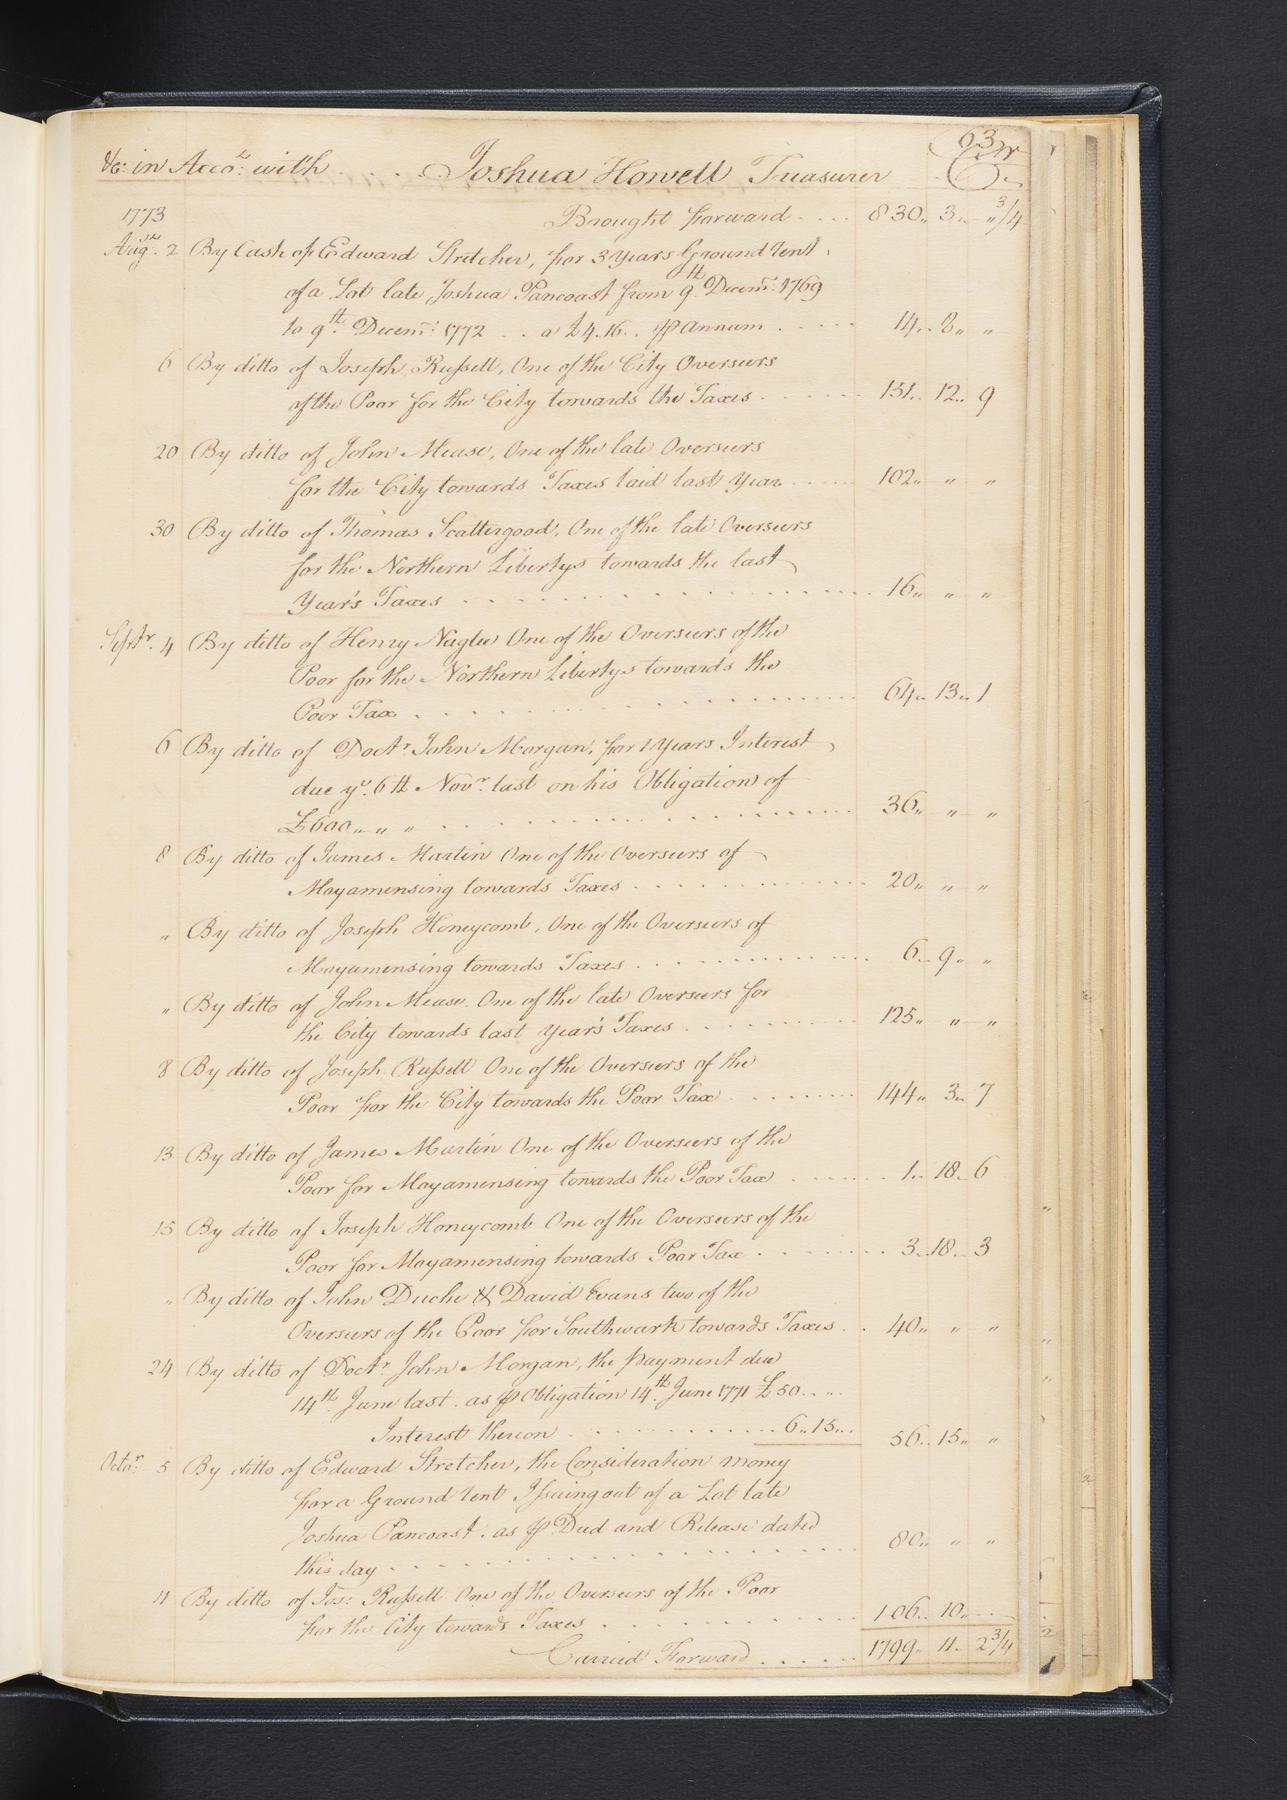 63
&c: in Acco.t with . . . . Joshua Howell Treasurer Cr.
1773 Brought forward .... 830.. 3.. " 3/4
Aug.st 2 By Cash of Edward Stretcher, for 3 Years Ground Rent
of a Lot late Joshua Pancoast from 9.th Decem.r 1769
to 9.th Decem.r 1772 . . a £4..16.. ⅌ Annum ..... 14.. 8.. "
6 By ditto of Joseph Russell, One of the City Overseers
of the Poor for the City towards the Taxes ....... 151.. 12.. 9
20 By ditto of John Mease, One of the late Overseers
for the City towards Taxes laid last Year ...... 102.. " "
30 By ditto of Thomas Scattergood, One of the late Overseers
for the Northern Libertys towards the last
Year's Taxes ............... 16.. " "
Septr. 4 By ditto of Henry Naglee One of the Overseers of the
Poor for the Northern Libertys towards the
Poor Tax ............... 64.. 13.. 1
6 By ditto of Doctr. John Morgan, for 1 Years Interest
due ye. 6th Novr. last on his Obligation of
£600.. " " ............... 36.. " "
8 By ditto of James Martin One of the Overseers of
Moyamensing towards Taxes ............ 20.. " "
" By ditto of Joseph Honeycomb, One of the Overseers of
Moyamensing towards Taxes ............ 6.. 9.. "
" By ditto of John Mease One of the late Overseers for
the City towards last Year's Taxes .......... 125.. " "
8 By ditto of Joseph Russell One of the Overseers of the
Poor for the City towards the Poor Tax ........ 144.. 3.. 7
13 By ditto of James Martin One of the Overseers of the
Poor for Moyamensing towards the Poor Tax ....... 1.. 18.. 6
15 By ditto of Joseph Honeycomb One of the Overseers of the
Poor for Moyamensing towards Poor Tax ........ 3.. 18.. 3
" By ditto of John Duche & David Evans two of the
Overseers of the Poor for Southwark towards Taxes .. 40.. " "
24 By ditto of Doctr. John Morgan, the payment due
14th. June last. as ⅌ Obligation 14th. June 1771 £50.. ..
Interest thereon ............ 6..15.. 56.. 15.. "
Octor. 5 By ditto of Edward Stretcher, the Consideration money
for a Ground Rent Issuing out of a Lot late
Joshua Pancoast. as ⅌ Deed and Release dated
this day ............... 80.. " "
11 By ditto of Jos: Russell One of the Overseers of the Poor
for the City towards Taxes ............ 106.. 10.. ..
Carried Forward ...... 1799.. 11.. 2 3/4